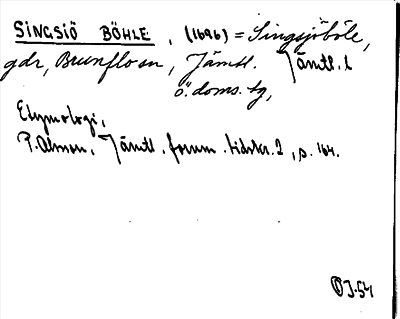 SINGSJÖ BÖHLE, (1696) = Singsjöböle,
gdr, Brunflo sn, Jämtl. Jämtl. l
ö. doms. tg,
Etymologi,
P. Alman. Jämtl. fornm. tidskr. 2, s. 164.
OJ-54